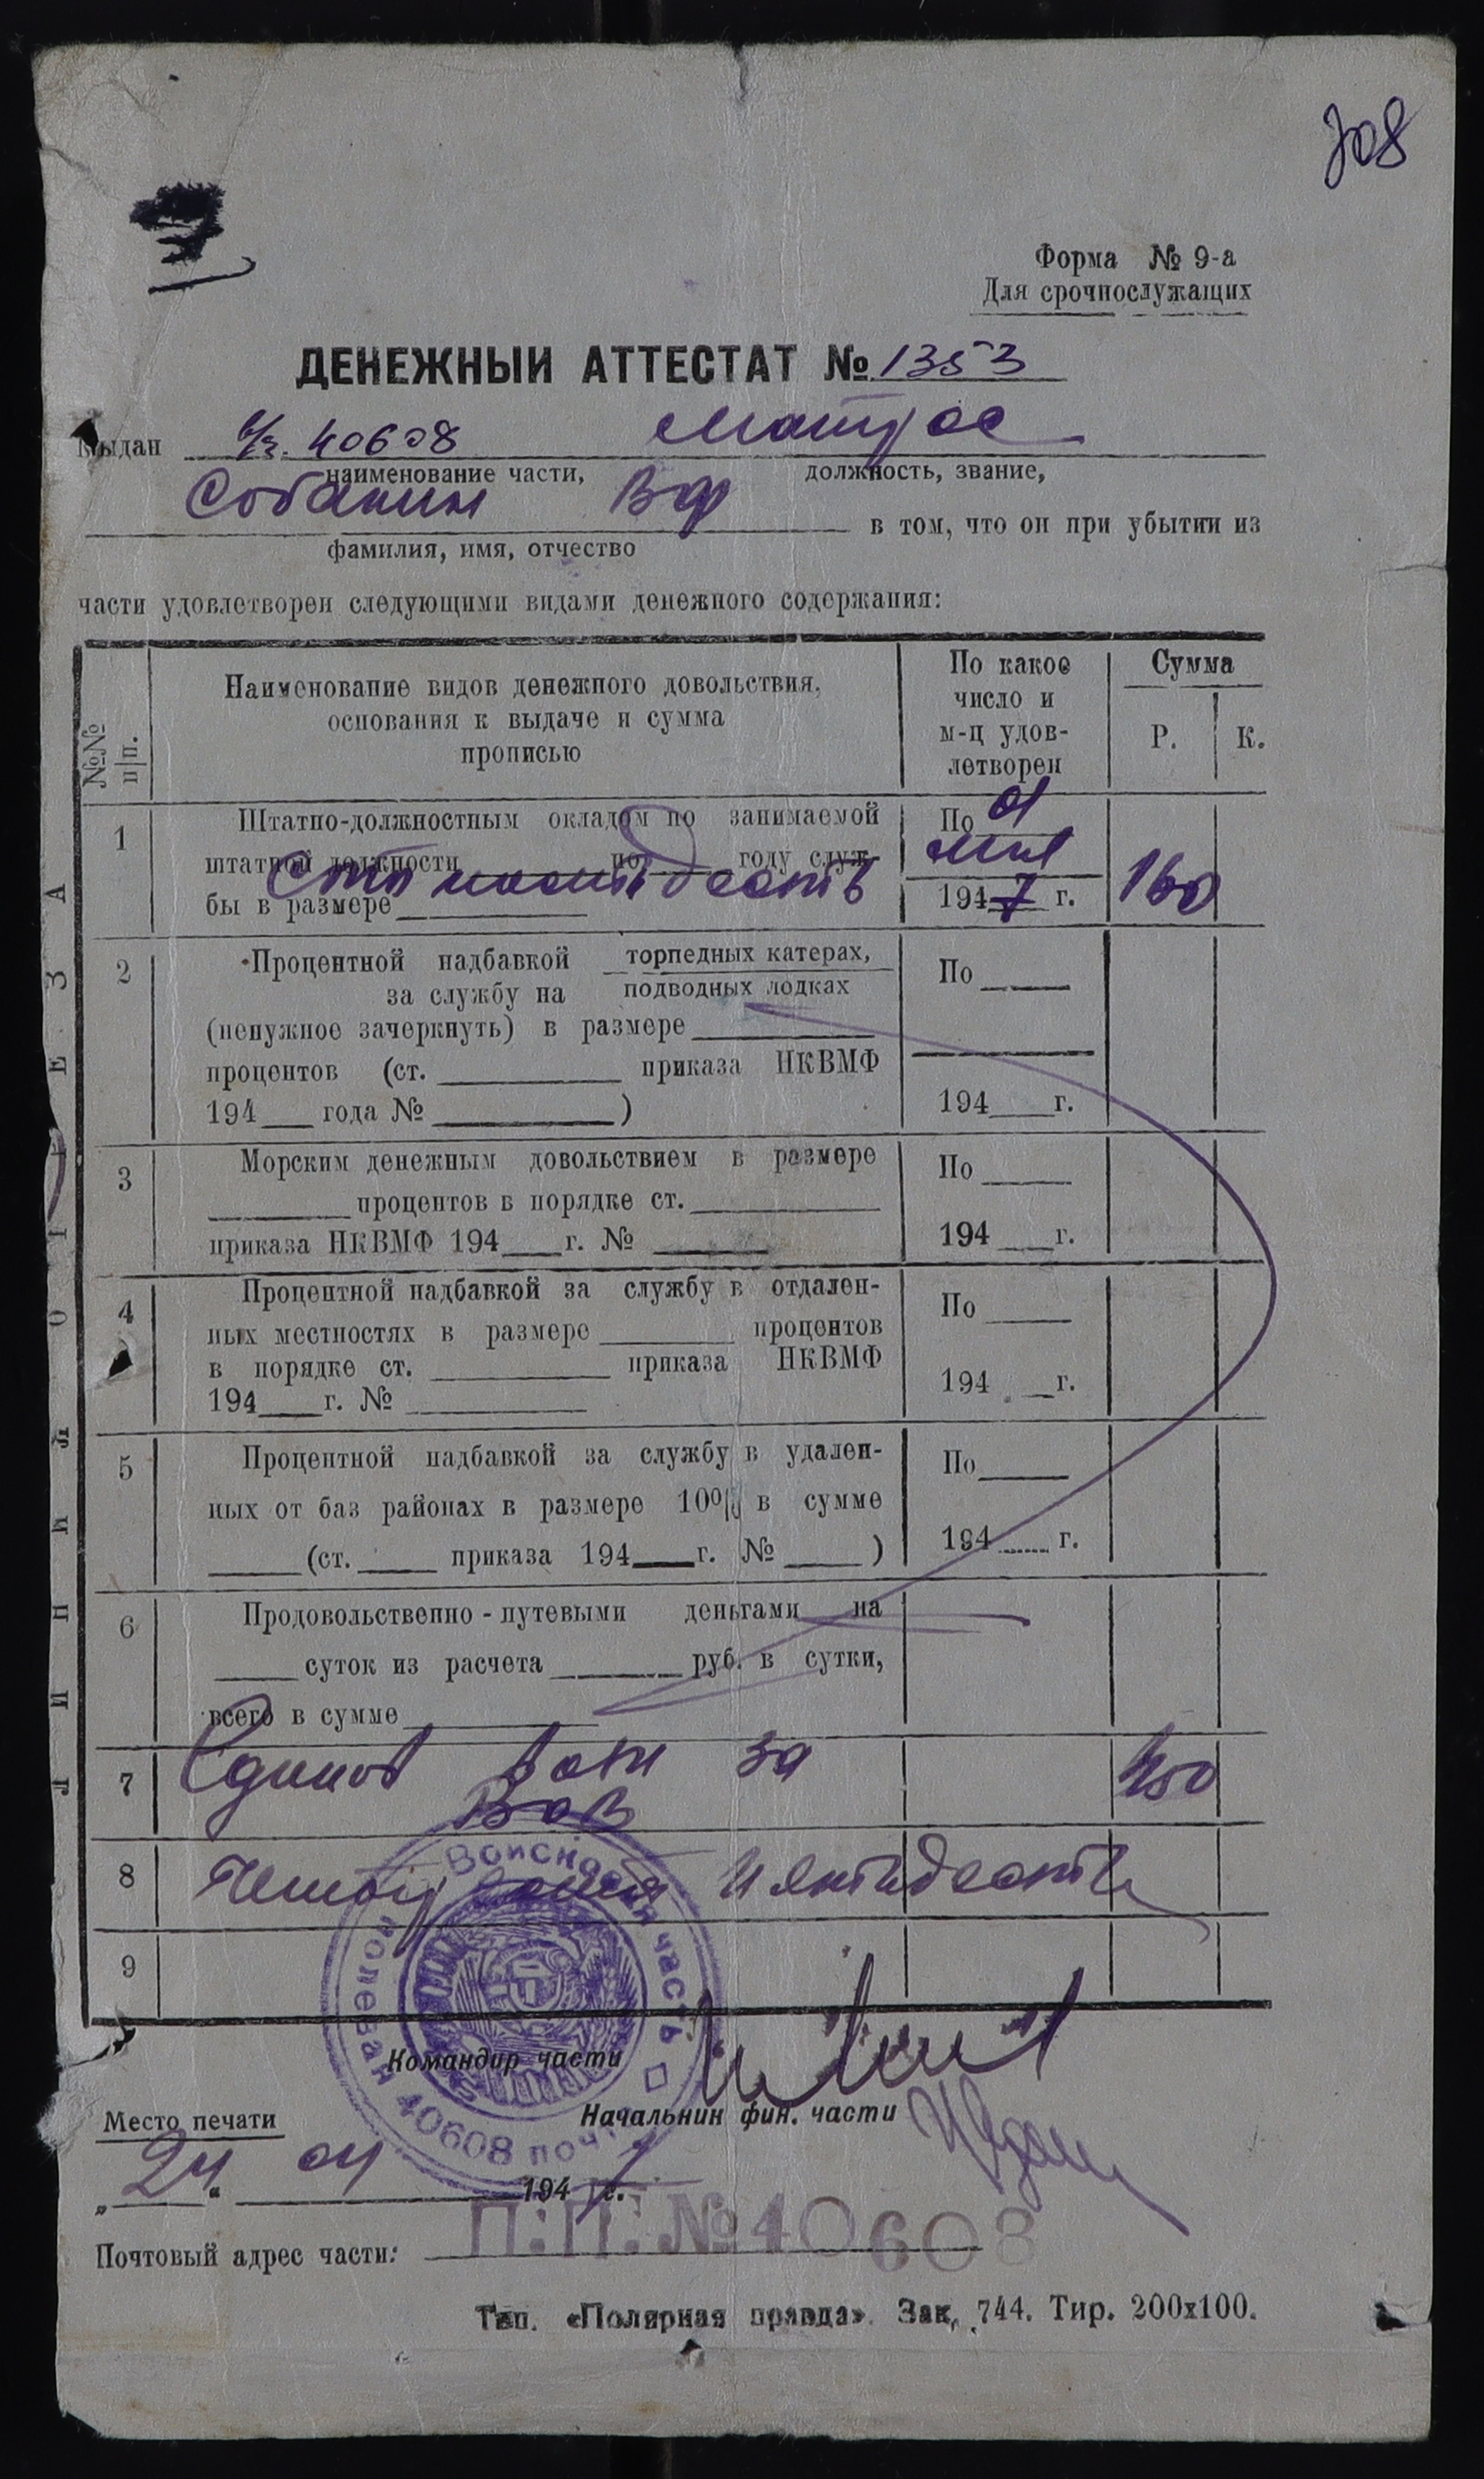 708
Форма № 9-а
Для срочнослужащих
ДЕНЕЖНЫЙ АТТЕСТАТ № 1353
Выдан в/ч. 40608 Матрос
наименование части, должность, звание,
Собакин ВФ в том, что он при убытии из
фамилия, имя, отчество
части удовлетворен следующими видами денежного содержания:
№№ п/п. Наименование видов денежного довольствия, основания к выдаче и сумма прописью По какое число и м-ц удовлетворен Сумма Р. К.
1 Штатно-должностным окладом по занимаемой По 01
штатной должности по годy служ-
бы в размере Сто шестьдесять 1947 г. 160
2 Процентной надбавкой торпедных катерах, По
за службу на подводных лодках
(ненужное зачеркнуть) в размере
процентов (ст. приказа НКВМФ
194 года № ) 194 г.
3 Морским денежным довольствием в размере По
процентов в порядке ст.
приказа НКВМФ 194 г. № 194 г.
4 Процентной надбавкой за службу в отдален- По
ных местностях в размере процентов
в порядке ст. приказа НКВМФ 194 г.
194 г. №
5 Процентной надбавкой за службу в удален- По
ных от баз районах в размере 10% в сумме
(ст. приказа 194 г. № ) 194 г.
6 Продовольственно-путевыми деньгами на
суток из расчета руб. в сутки,
всего в сумме
7 за 450
ВОВ
8 пятьдесять
9
Войсковая часть полевая почта 40608
Командир части
Место печати
Начальник фин. части
„24“ 04 1947 г.
Почтовый адрес части: П.П. № 40608
Тип. «Полярная правда». Зак. 744. Тир. 200х100.
ЛИНИЯ ОТРЕЗА